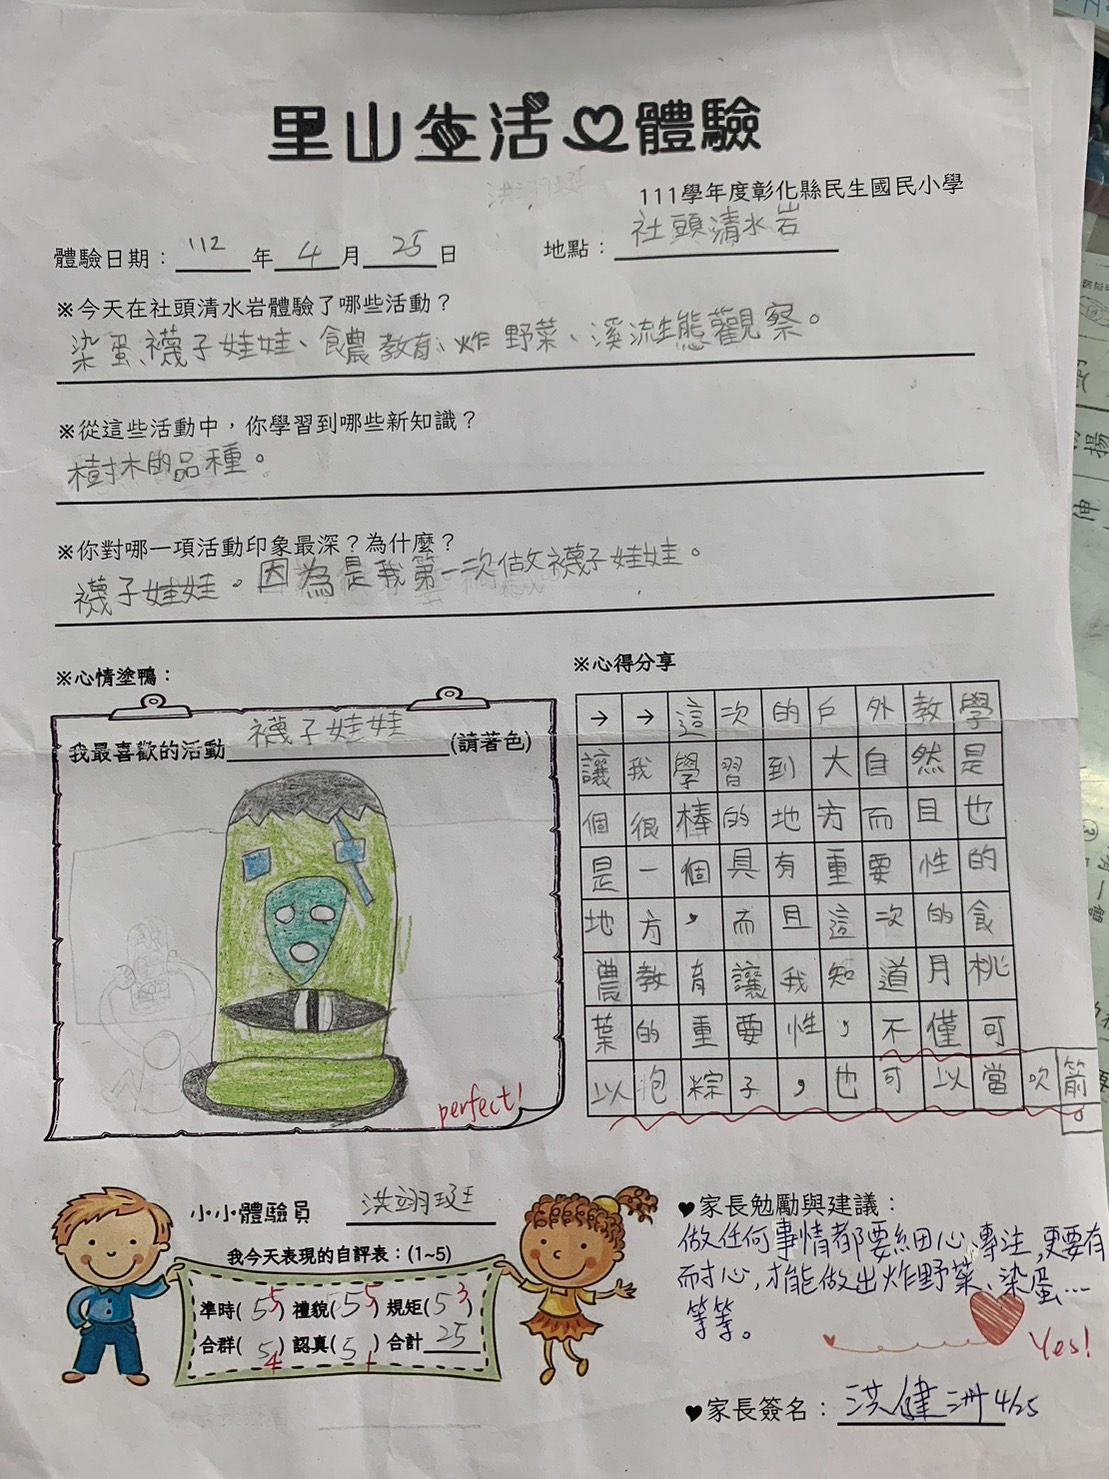 里山生活體驗
111學年度彰化縣民生國民小學
體驗日期：112年4月25日 地點：社頭清水岩
※今天在社頭清水岩體驗了哪些活動？
染蛋、襪子娃娃、食農教育、炸野菜、溪流生態觀察。
※從這些活動中，你學習到哪些新知識？
樹木的品種。
※你對哪一項活動印象最深？為什麼？
襪子娃娃。因為是我第一次做襪子娃娃。
※心情塗鴨：
我最喜歡的活動襪子娃娃(請著色)
perfect!
※心得分享
→→這次的戶外教學
讓我學習到大自然是
個很棒的地方而且也
是一個具有重要性的
地方，而且這次的食
農教育讓我知道月桃
葉的重要性，不僅可
以包粽子，也可以當吹箭。
小小體驗員 洪翊珽
我今天表現的自評表：(1~5)
準時(5 5) 禮貌(5 5) 規矩(5 3)
合群(5 4) 認真(5) 合計25
♥家長勉勵與建議：
做任何事情都要細心、專注，更要有
耐心，才能做出炸野菜、染蛋…
等等。
Yes!
♥家長簽名：洪健洲 4/25